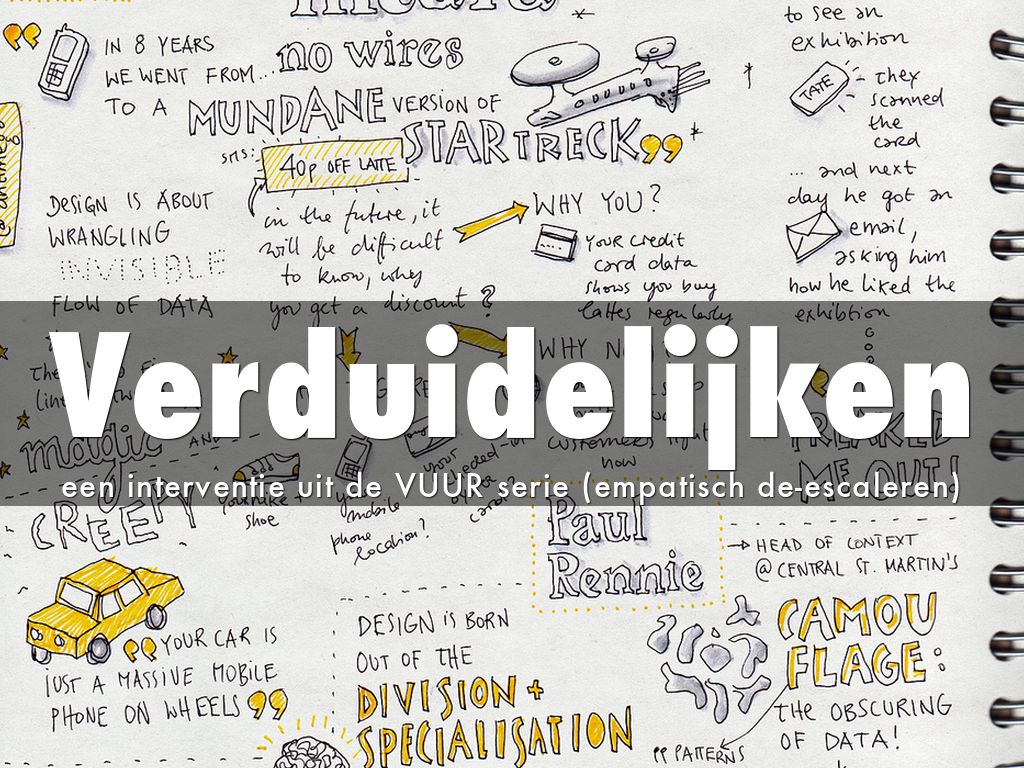 IN 8 YEARS
WE WENT FROM...
no wires
TO A MUNDANE VERSION OF
STARTRECK
SMS:
40p OFF LATTE
DESIGN IS ABOUT
WRANGLING
INVISIBLE
FLOW OF DATA
in the future, it
will be difficult
to know, why
you get a discount?
WHY YOU?
YOUR CREDIT
card data
shows you buy
lattes regularly
to see an
exhibition
TATE
they
scanned
the
card
... and next
day he got an
email,
asking him
how he liked the
exhibition
Verduidelijken
een interventie uit de VUUR serie (empatisch de-escaleren)
WHY
magic AND
CREEPY
customers
now
FREAKED
ME OUT!
shoe
mobile
phone
location?
Paul
Rennie
HEAD OF CONTEXT
@ CENTRAL ST. MARTIN'S
YOUR CAR IS
JUST A MASSIVE MOBILE
PHONE ON WHEELS
DESIGN IS BORN
OUT OF THE
DIVISION +
SPECIALISATION
CAMOU
FLAGE:
THE OBSCURING
OF DATA!
PATTERNS